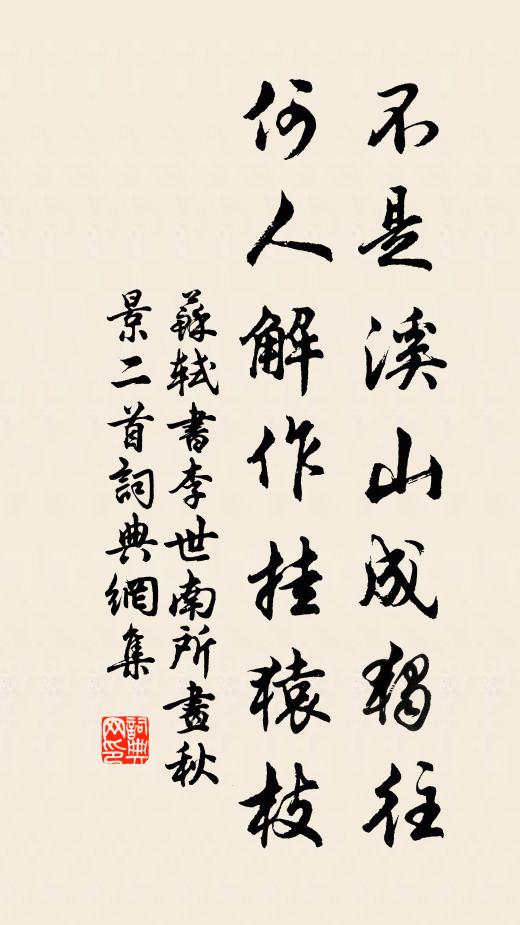 不是溪山成獨往
何人解作挂猿枝
蘇軾書李世南所畫秋
景二首詞典網集
詞典
网印